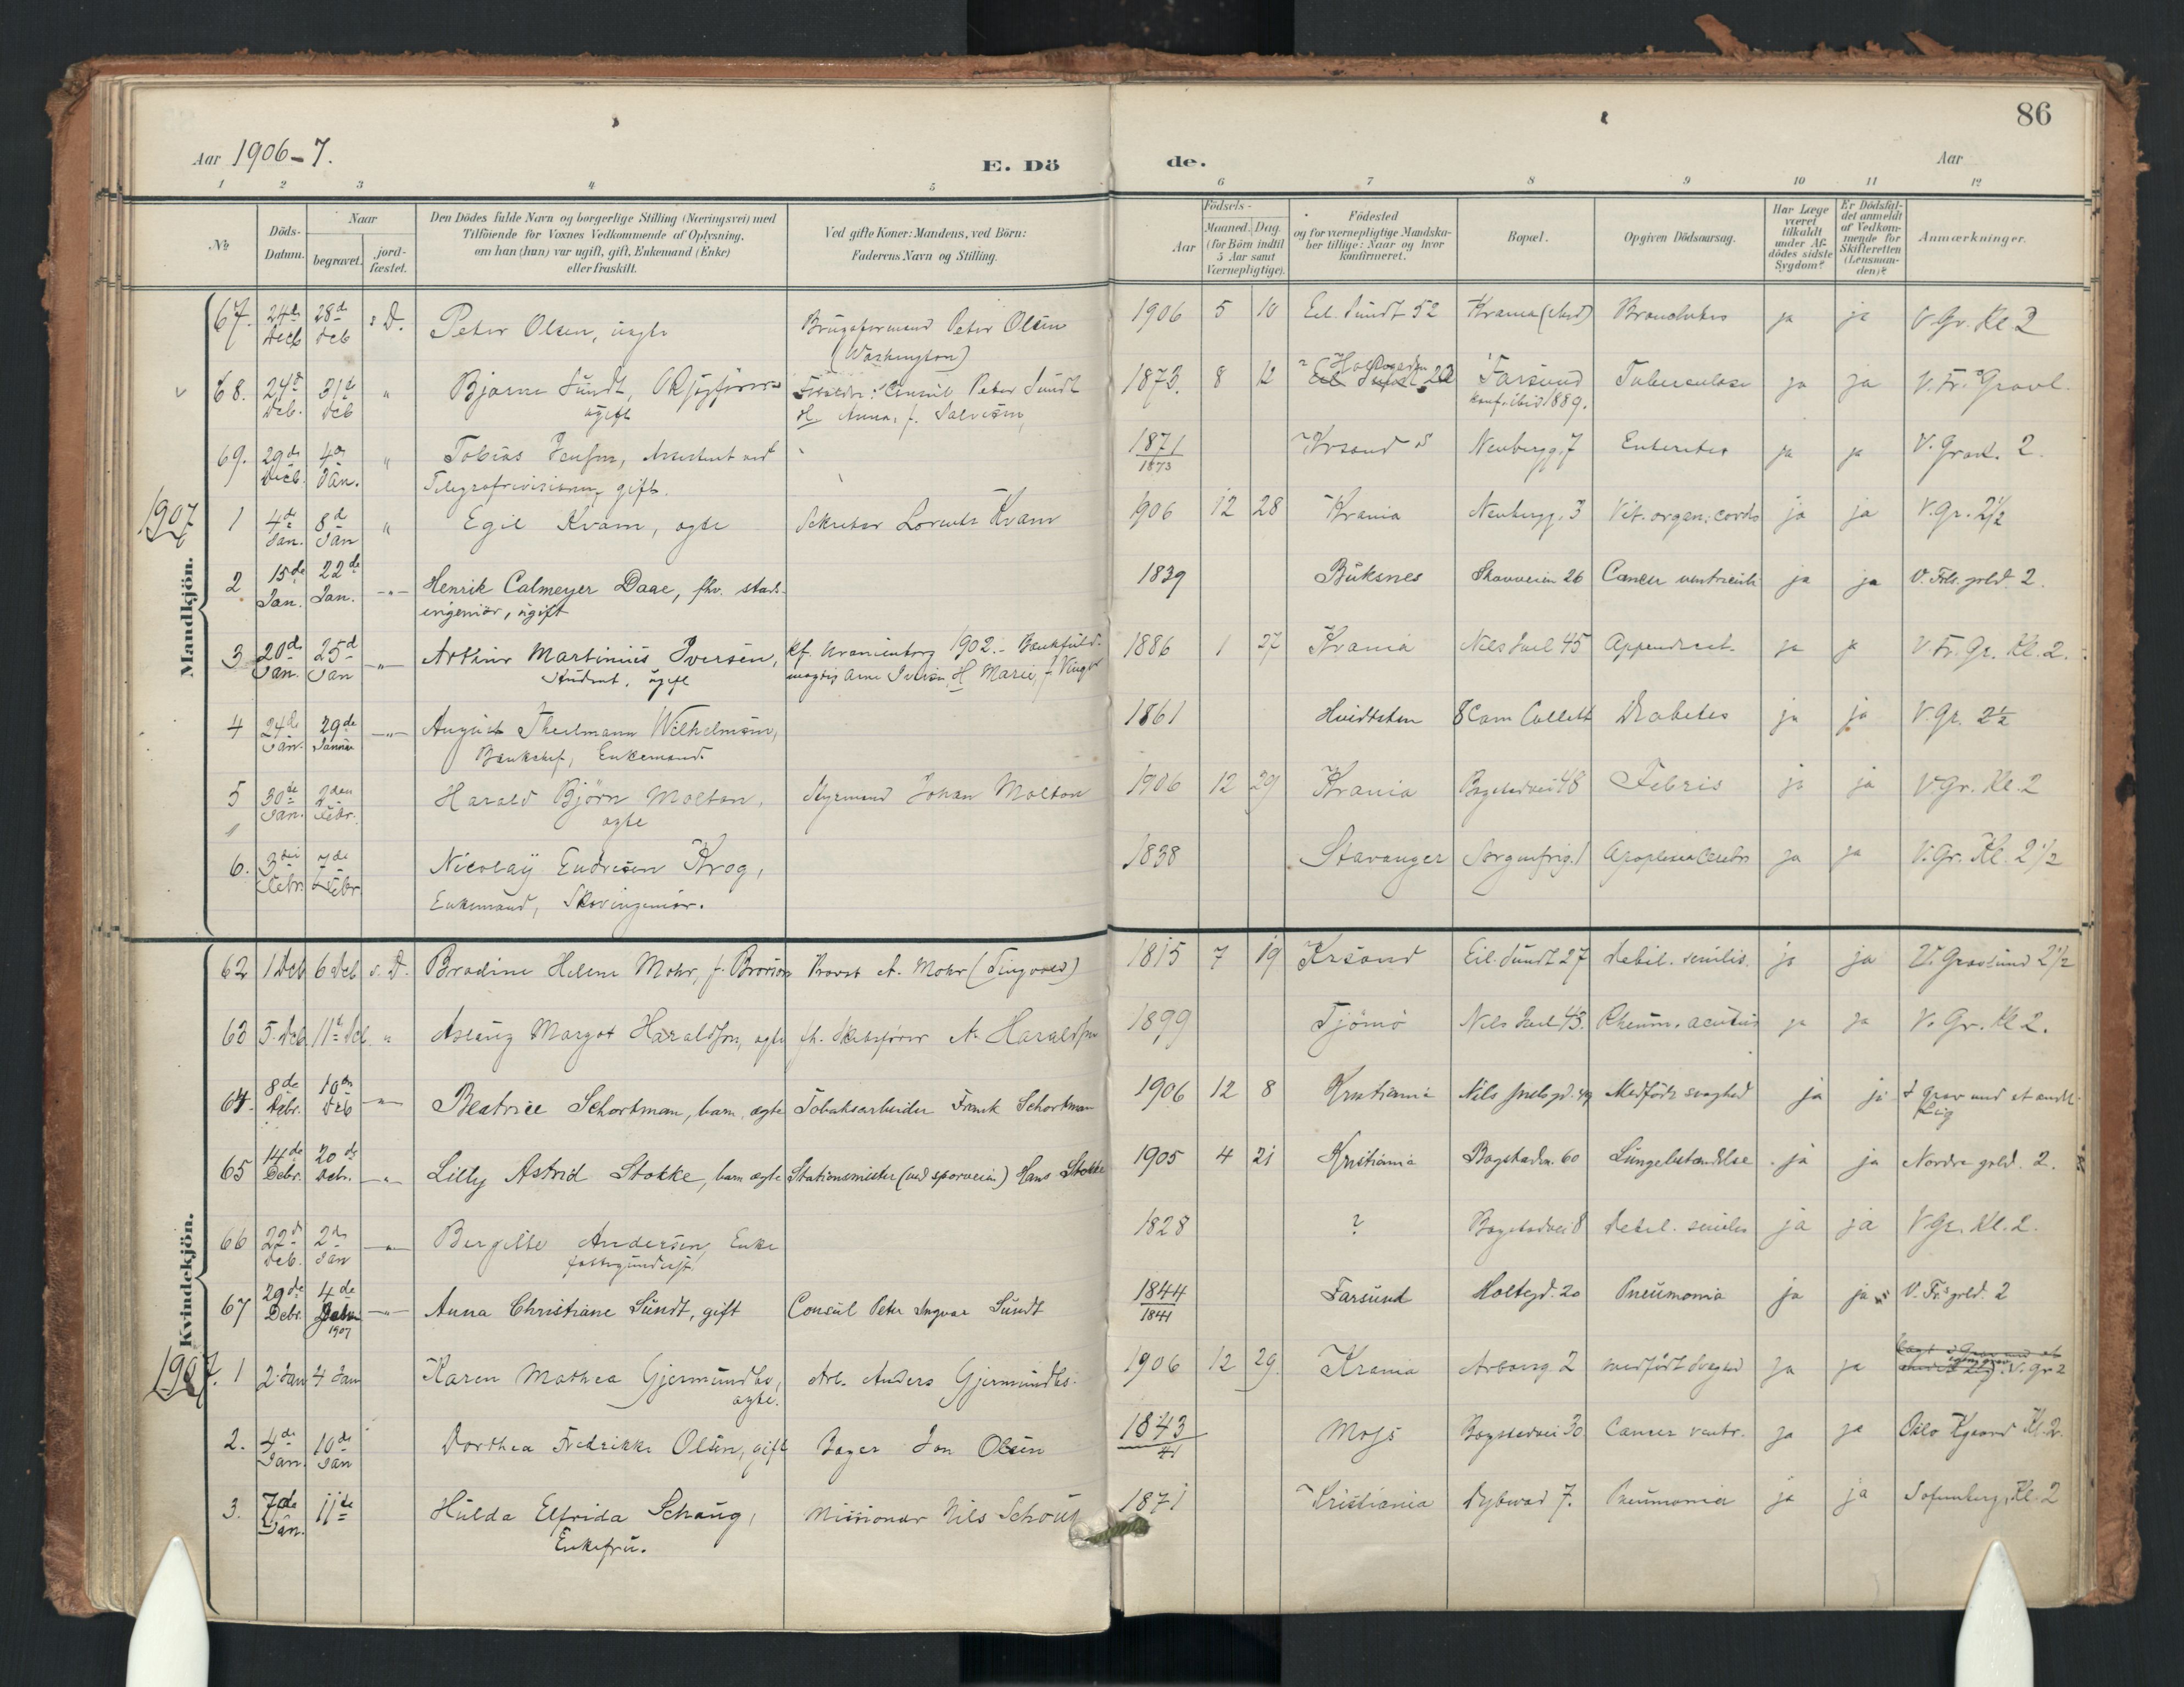 86
Aar 1906-7.
E. Dö
de.
Aar
1 2 3 4 5 6 7 8 9 10 11 12
№
Döds-
Datum.
Naar
begravet.
jord-
fæstet.
Den Dödes fulde Navn og borgerlige Stilling (Næringsvei) med
Tilföiende for Voxnes Vedkommende af Oplysning,
om han (hun) var ugift, gift, Enkemand (Enke)
eller fraskilt.
Ved gifte Koner: Mandens, ved Börn:
Faderens Navn og Stilling.
Födsels-
Aar
Maaned. Dag.
(for Börn indtil
5 Aar samt
Værnepligtige).
Födested
og for værnepligtige Mandska-
ber tillige: Naar og hvor
konfirmeret.
Bopæl.
Opgiven Dödsaarsag.
Har Læge
været
tilkaldt
under Af-
dödes sidste
Sygdom?
Er Dödsfal-
det anmeldt
af Vedkom-
mende for
Skifteretten
(Lensman-
den)?
Anmærkninger.
Mandkjön.
67. 24de Decb 28d Deb s. D. Peter Olsen, uægte Brugsformand Peter Olsen 1906 5 10 Eil. Sundt 52 Krania Bronchites ja ja V. Gr. Kl 2
(Washington)
68. 24d Deb. 31te Deb " Bjarne Sundt, Consul Peter Sundt 1873. 8 12 Farsund Tuberculose ja ja V. Fr. Gravl.
ugift Anna, f. 1889.
69. 29de Decb. 4de Jan. " Tobias Jensen, Assistent ved 1871 Krsand S Neubergg. 7 Enterites ja ja V. Grav. 2.
Telegrafrevisionen, gift. 1873
1907
1 4de Jan. 8d Jan " Egil Kvam, ægte Sekretær Lorentz Kvam 1906 12 28 Krania Neubergg. 3 Vit. organ. cordis ja ja V. Gr. 2½
2 15de Jan. 22de Jan. -"- Henrik Calmeyer Daae, fhv. stads- 1839 Buksnes Skovveien 26 Cancer ventriculi ja ja V. Fr. grld. 2.
ingeniør, ugift
3 20de Jan. 25d Jan -"- Arthur Martinius Iversen, Kf. Uranienborg 1902. 1886 1 27 Krania Nils Juel 45 Appendicit. ja ja V. Fr. Gr. Kl. 2.
Student, ugift Arne Iversen, H Marie, f.
4 24de Jan. 29de Januar -"- August Theilmann Wilhelmsen, 1861 Hvidtsten 8 Cam Collett Diabetes ja ja V. Gr. 2½
Bankchef, Enkemand.
5 30te Jan. Febr. Harald Björn Molton, Styrmand Johan Molton 1906 12 29 Krania Bogstadvei 48 Febris ja ja V Gr. Kl. 2
ægte
6. 3die Febr. 7de Febr Nicolay Endresen Krog, 1838 Stavanger Sorgenfrig. 1 Apoplexia Cerebri ja ja V. Gr. Kl. 2½
Enkemand, Skovingeniør.
Kvindekjön.
62 1 Deb 6 Deb s. D. Brodine Helene Mohr, f. Brorson Provst A. Mohr (Tingvold) 1815 7 19 Krsand Eil. Sundt 27 Debil. senilis. ja ja V. Gravlund 2½
63 5. Deb 11te Deb. " Aslaug Margot Haraldsen, ægte fh. Skibsfører N. Haraldsen 1899 Tjömö Nils Juel 43. Rheum. acutus ja ja V. Gr. Kl 2.
64. 8de Debr. 10de Deb -"- Beatrice Schortman, barn, ægte Tobaksarbeider Frank Schortman 1906 12 8 Kristiania Nils Juelsgd. 49 Medfödt svaghed ja ja I grav med et andet
Lig
65 14de Debr. 20de Debr. -"- Lilly Astrid Stokke, barn ægte Stationsmester (ved sporveien) Hans Stokke 1905 4 21 Kristiania Bogstadv. 60 Lungebetændelse ja ja Nordre grld. 2.
66 22d Deb. 2de Jan -"- Bergitte Andersen, Enke 1828 ? Bogstadvei 8 Debil. senilis ja ja V. Gr. Kl. 2.
fattigunderst.
67 29de Debr. 4de 1907 -"- Anna Christiane Sundt, gift Consul Peter Ingvar Sundt 1844 Farsund Holtegd. 20 Pneumonia ja ja V. Frs grld. 2
1841
1907. 1 2 Jan 4 Jan Karen Mathea Gjermundbo, Arb. Anders Gjermundbo. 1906 12 29. Krania Arboesg. 2 medfödt svaghed ja ja V. Gr. 2
ægte.
2. 4de Jan. 10de Jan Dorthea Fredrikke Olsen, gift Bager Jon Olsen 1843 Moss Bogstadvei 30 Cancer ventr. ja ja Oslo Kgaard Kl. 2.
41
3. 7de Jan. 11te Hulda Elfrida Schaug, Missionær Nils 1871 Kristiania Dybwad 7. Pneumonia ja ja Sofienberg, Kl. 2
Enkefru.